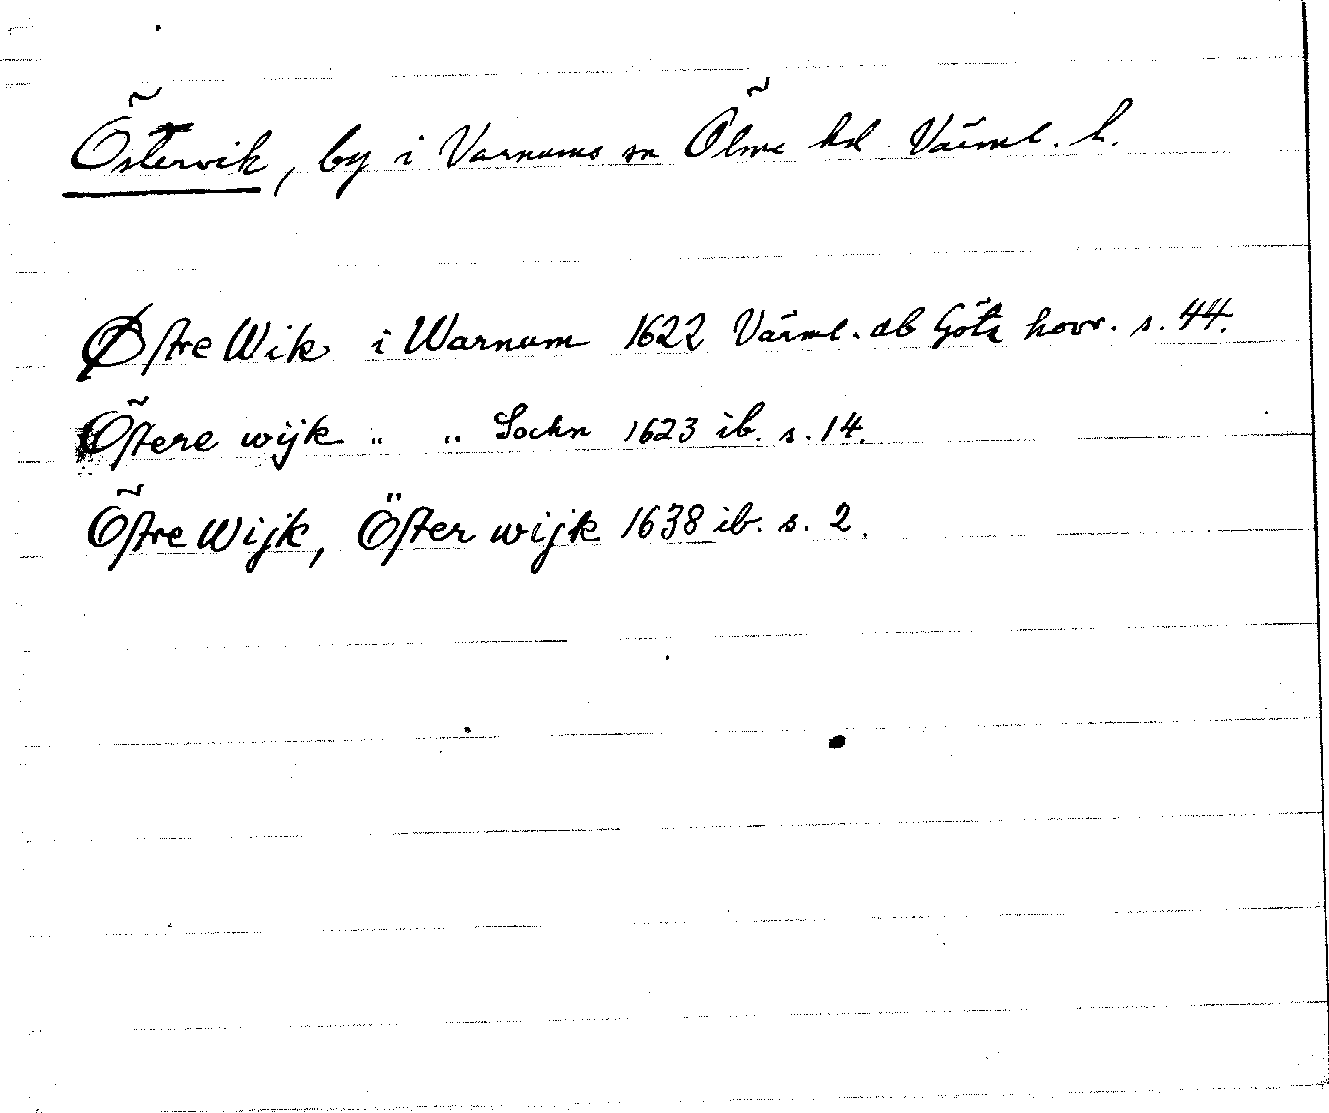 Östervik, by i Varnums sn Ölme hd Värml. l.
Østre Wik i Warnum 1622 Värml. db Göta hovr. s. 44.
Östere wijk " " Sockn 1623 ib. s. 14.
Östre Wijk, Öster wijk 1638 ib. s. 2.